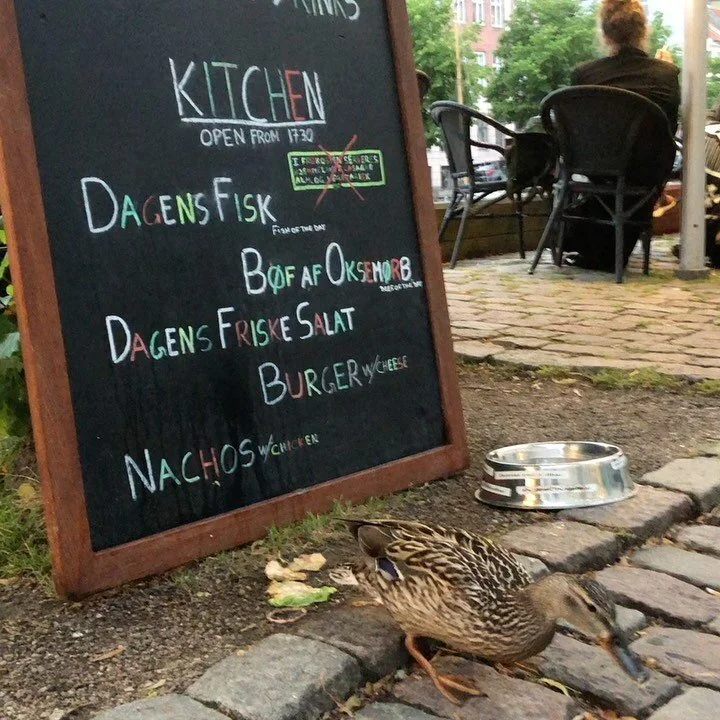 DRINKS
KITCHEN
OPEN FROM 1730
I FROKOSTEN SERVERES
DAGENS FISK
FISH OF THE DAY
BØF AF OKSEMØRB
BEEF OF THE DAY
DAGENS FRISKE SALAT
BURGER W/CHEESE
NACHOS W/CHICKEN